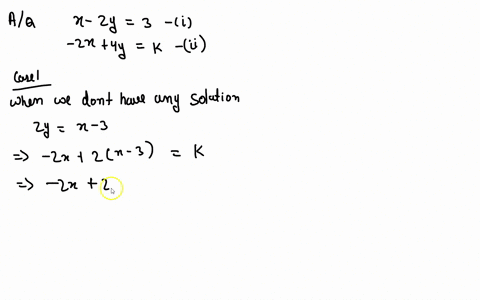 A/Q x - 2y = 3 - (i)
-2x + 4y = K - (ii)
Case 1
when we dont have any solution
2y = x - 3
=> -2x + 2(x - 3) = K
=> -2x + 2